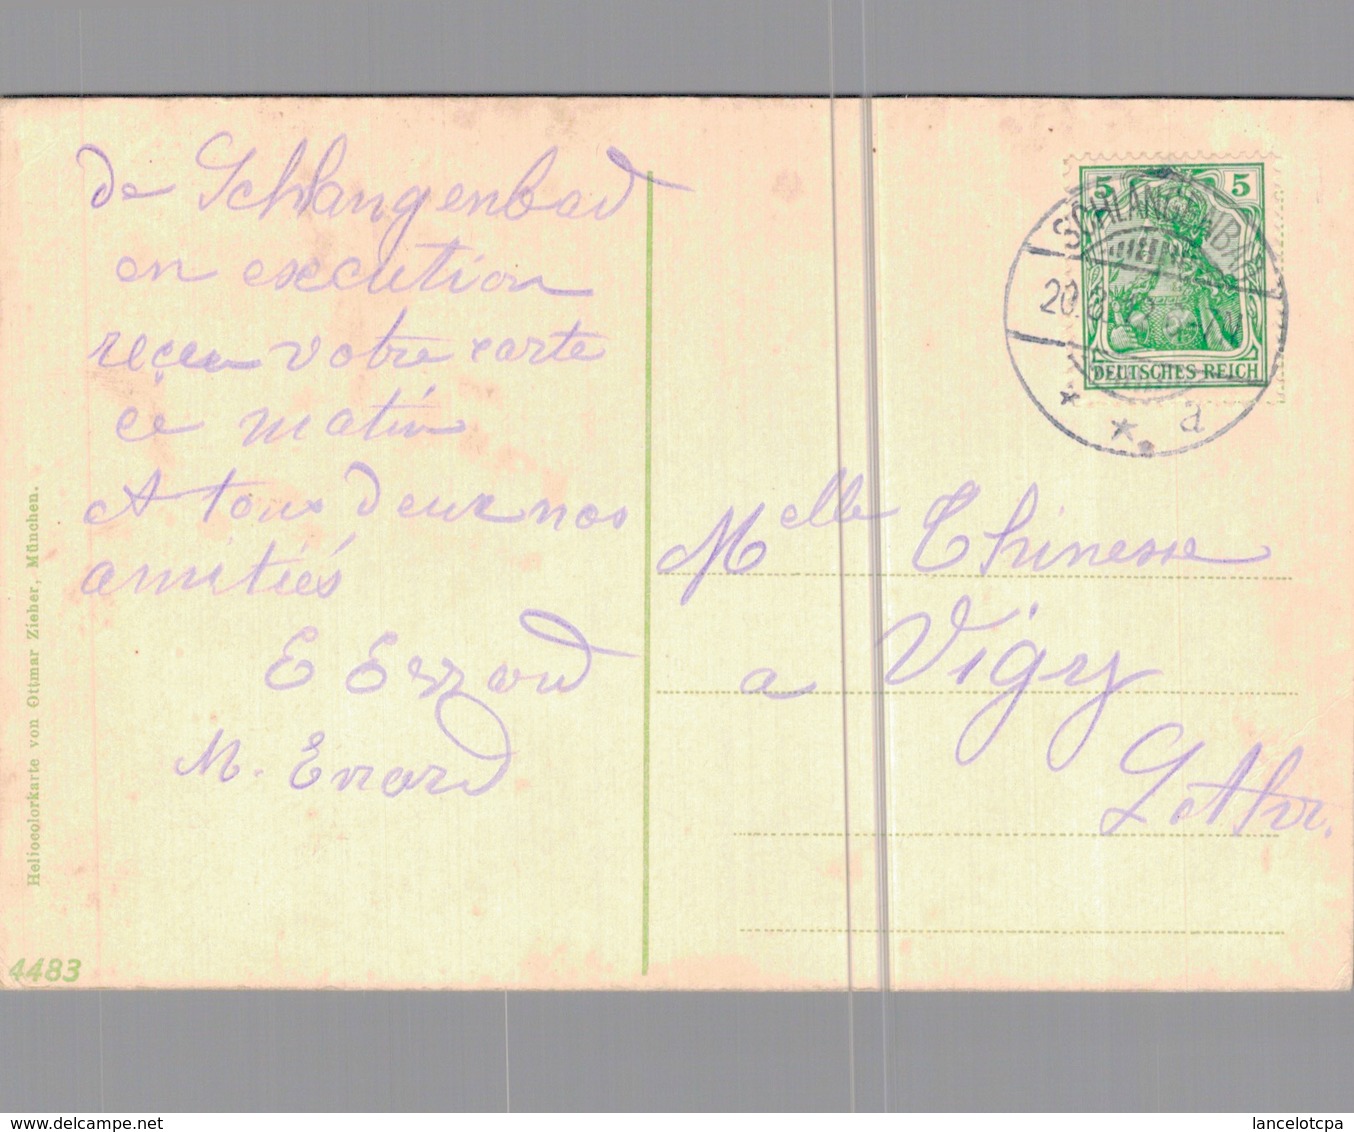 de Schlangenbad
en execution
reçeu votre carte
ce matin
et tous deux nos
amitiés
E Errard
M. Errard
Melle Thinesse
a Vigy
Lothr.
5 5
DEUTSCHES REICH
SCHLANGENBAD
a
Heliocolorkarte von Ottmar Zieher, München.
4483
www.delcampe.net
lancelotcpa